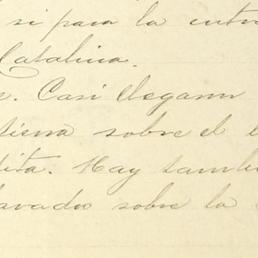 si para la entra
Catalina.
Casi llegann
tierra sobre el
dita. Hay tambi
lavados sobre la